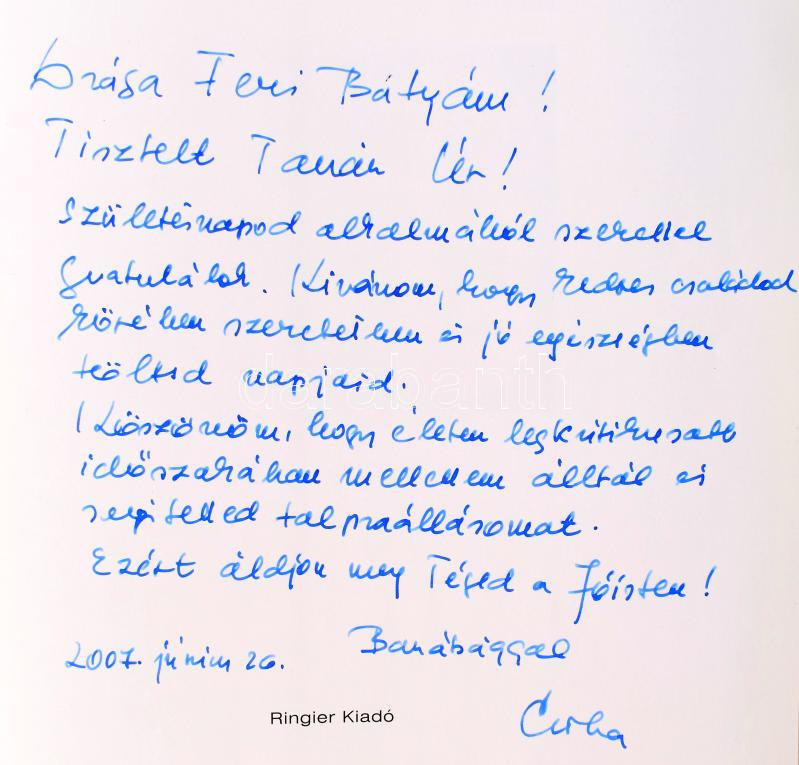 Drága Feri Bátyám!
Tisztelt Tanár Úr!
Születésnapod alkalmából szeretettel
gratulálok. Kívánom, hogy kedves családod
körében szeretetben és jó egészségben
töltsd napjaid.
Köszönöm, hogy életem legkritikusabb
időszakában mellettem álltál és
segítetted talpraállásomat.
Ezért áldjon meg Téged a Jóisten!
Barátsággal
2007. június 26.
Ringier Kiadó
darabanth